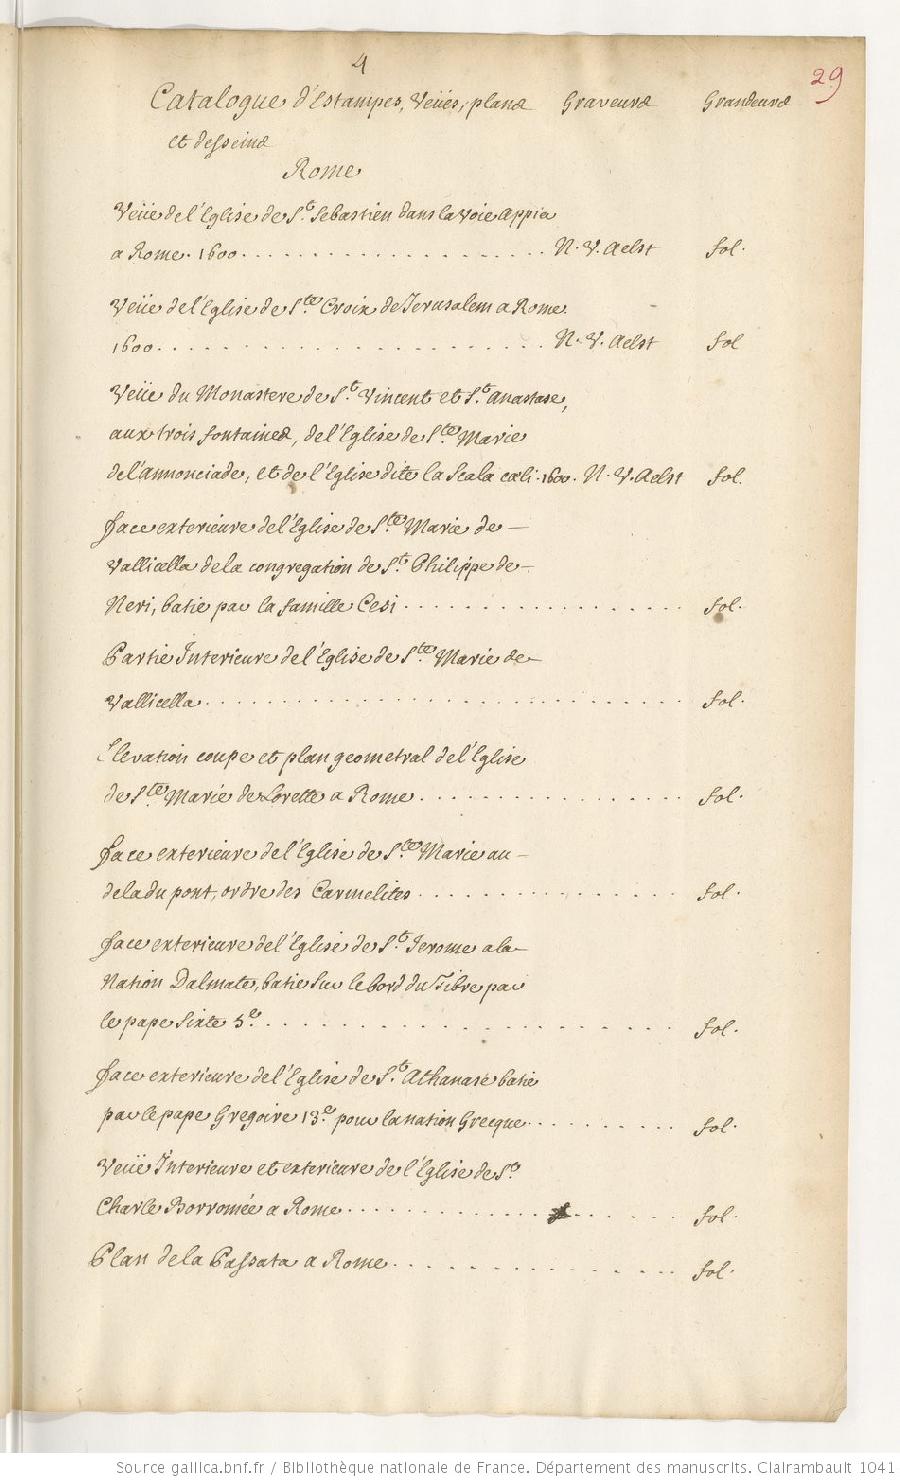 4
29
Catalogue d'Estampes, Veües, plans Graveurs Grandeurs
et desseins
Rome
Veüe de l'Eglise de St. Sebastien dans la voie Appia
a Rome. 1600. N. V. Aelst fol.
Veüe de l'Eglise de Ste. Croix de Jerusalem a Rome
1600. N. V. Aelst fol
Veüe du Monastere de St. Vincent et St. Anastase,
aux trois fontaines, de l'Eglise de Ste. Marie
de l'annonciade, et de l'Eglise dite la Scala cœli. 1600. N. V. Aelst fol.
face exterieure de l'Eglise de Ste. Marie de —
Vallicella de la congregation de St. Philippe de —
Neri, batie par la famille Cesi fol.
Partie Interieure de l'Eglise de Ste. Marie de —
Vallicella fol.
Elevation coupe et plan geometral de l'Eglise
de Ste. Marie de Lorette a Rome fol.
face exterieure de l'Eglise de Ste. Marie au —
dela du pont, ordre des Carmelites fol.
face exterieure de l'Eglise de St. Jerome a la —
Nation Dalmate, batie sur le bord du Tibre par
le pape Sixte 5e. fol.
face exterieure de l'Eglise de St. Athanase batie
par le pape Gregoire 13e. pour la nation Grecque fol.
Veüe Interieure et exterieure de l'Eglise de St.
Charle Borromée a Rome fol.
Plan de la Passata a Rome fol.
Source gallica.bnf.fr / Bibliothèque nationale de France. Département des manuscrits. Clairambault 1041